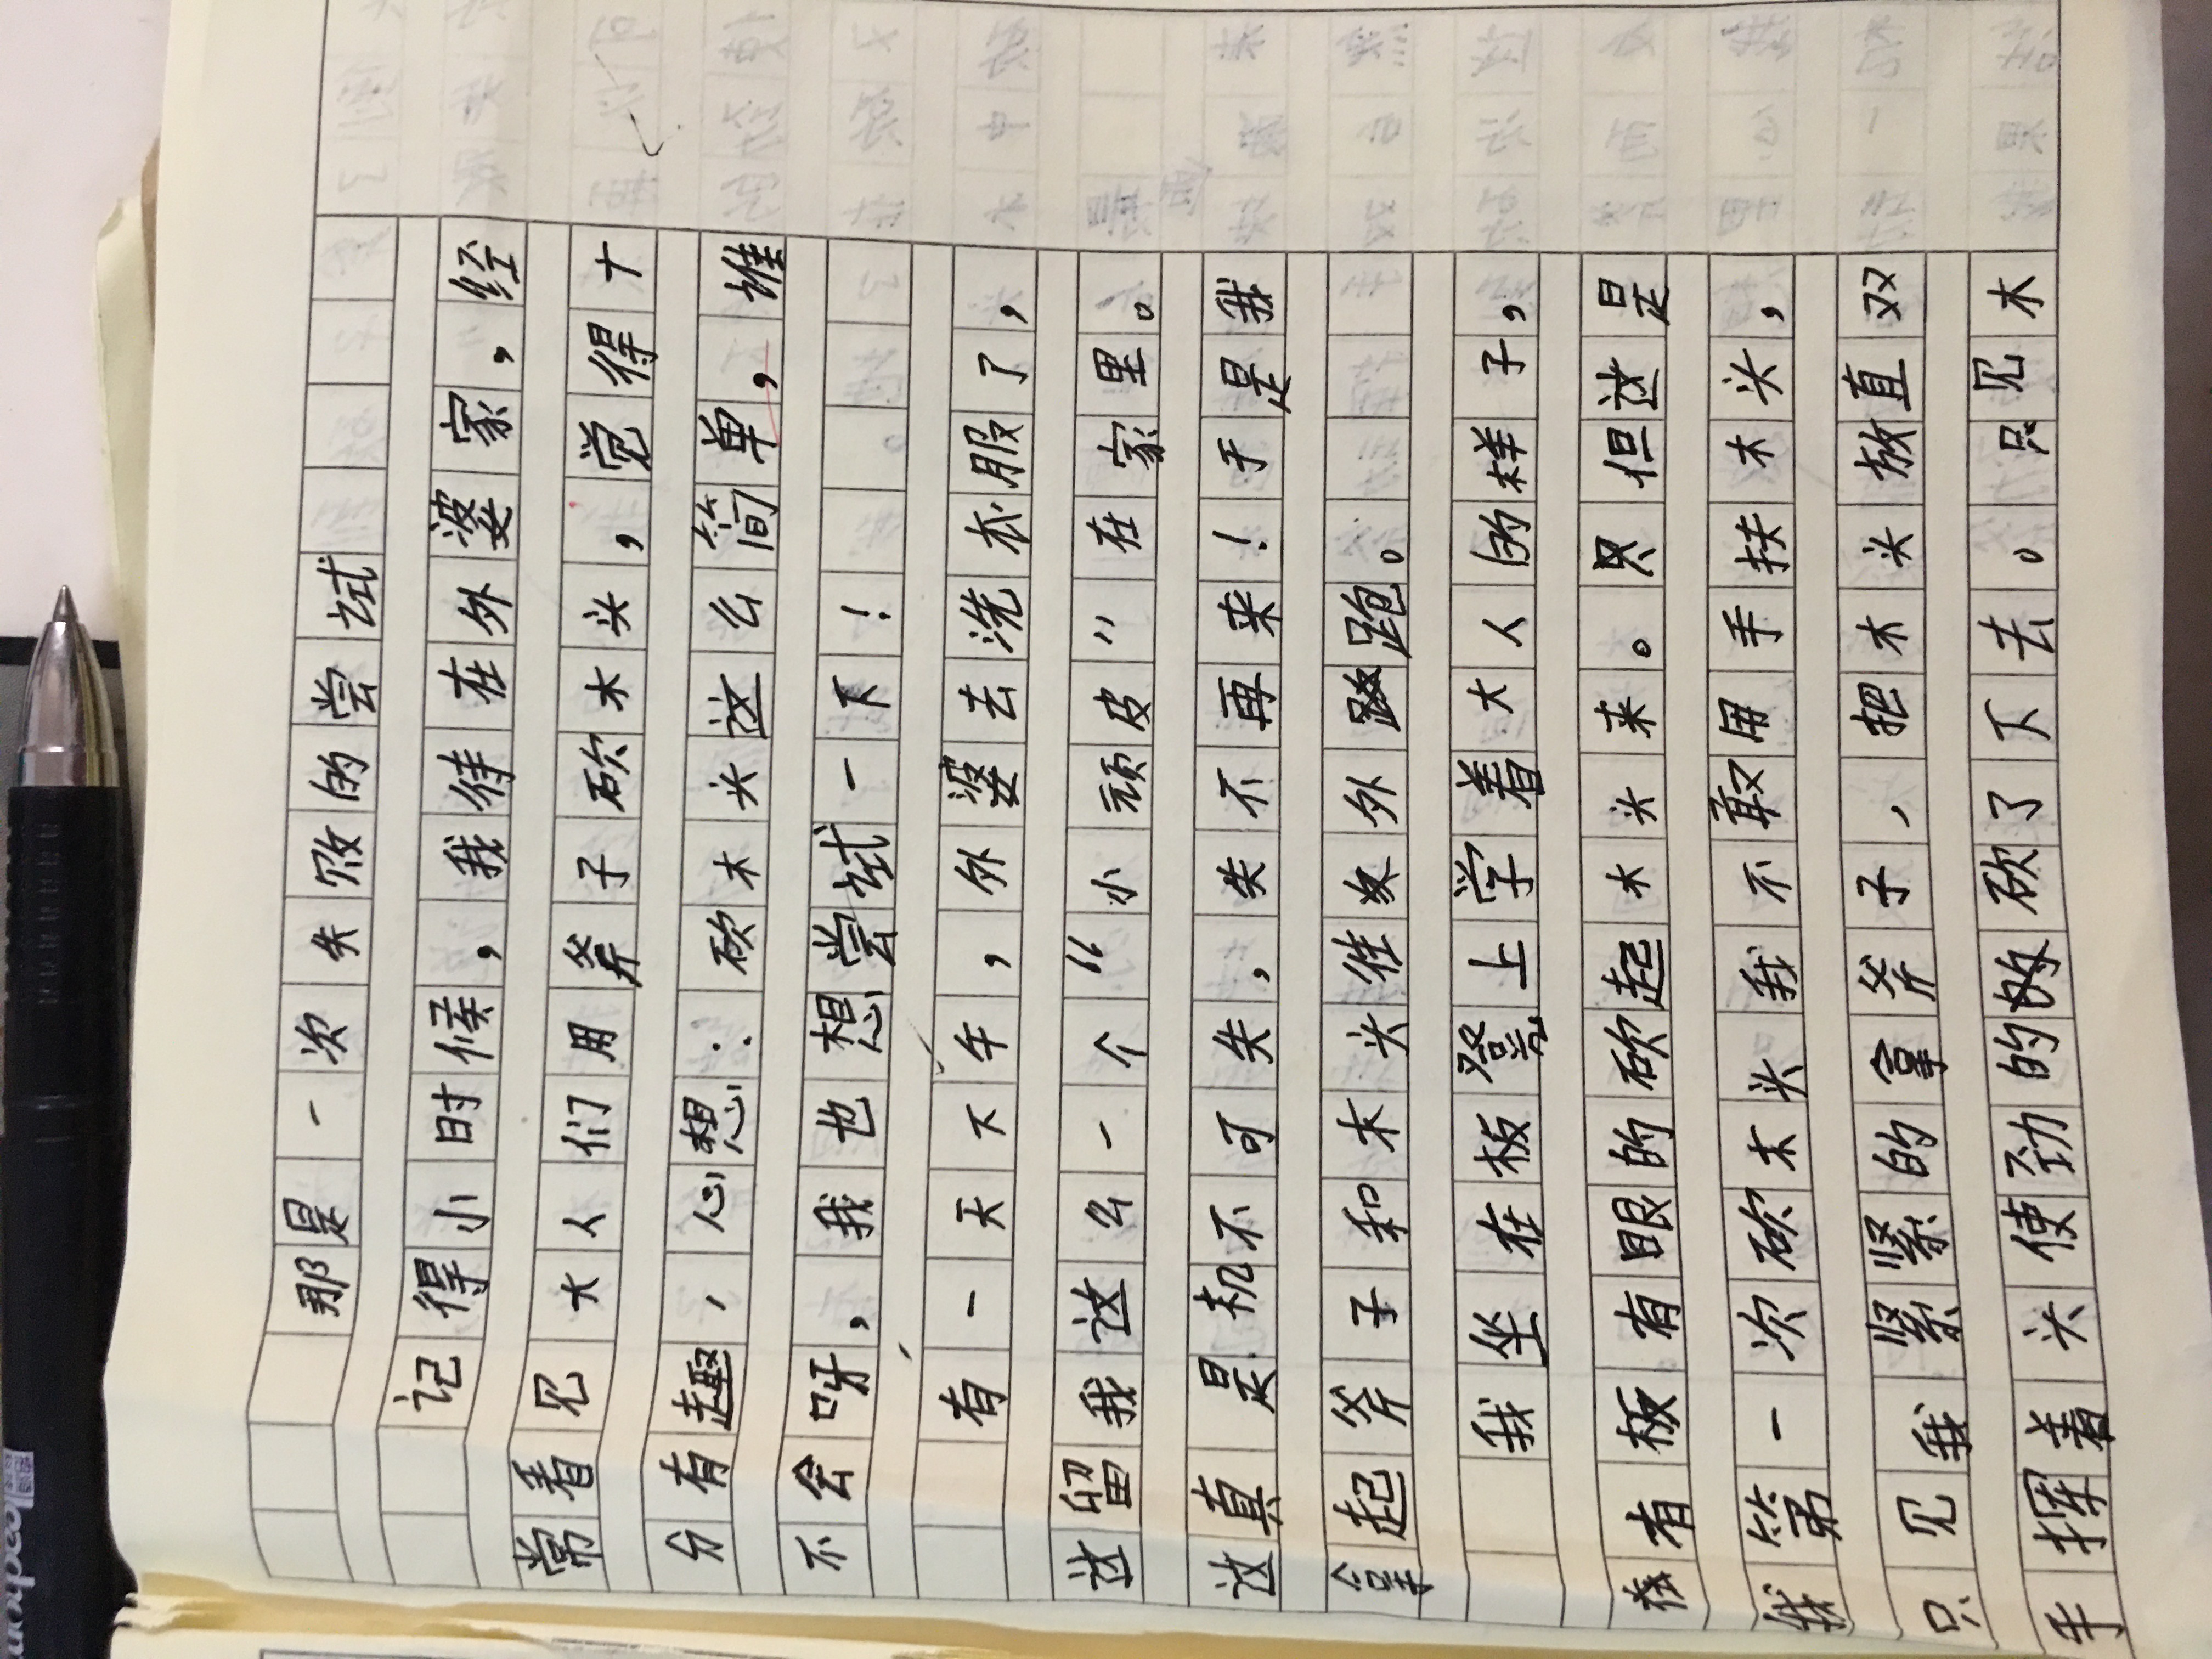 那是一次失败的尝试
记得小时候，我待在外婆家，经
常看见大人们用斧子砍木头，觉得十
分有趣，心想：砍木头这么简单，谁
不会呀，我也想尝试一下！
有一天下午，外婆去洗衣服了，
这留我这么一个“小顽皮”在家里。
这真是机不可失，失不再来！于是我
拿起斧子和木头往外跑。
我坐在板凳上学着大人的样子，
有板有眼的砍起木头来。只但这是
我第一次砍木头我不敢用手扶木头，
只见我紧紧的拿斧子，把木头放直双
手挥着头使劲的砍了下去。只见木